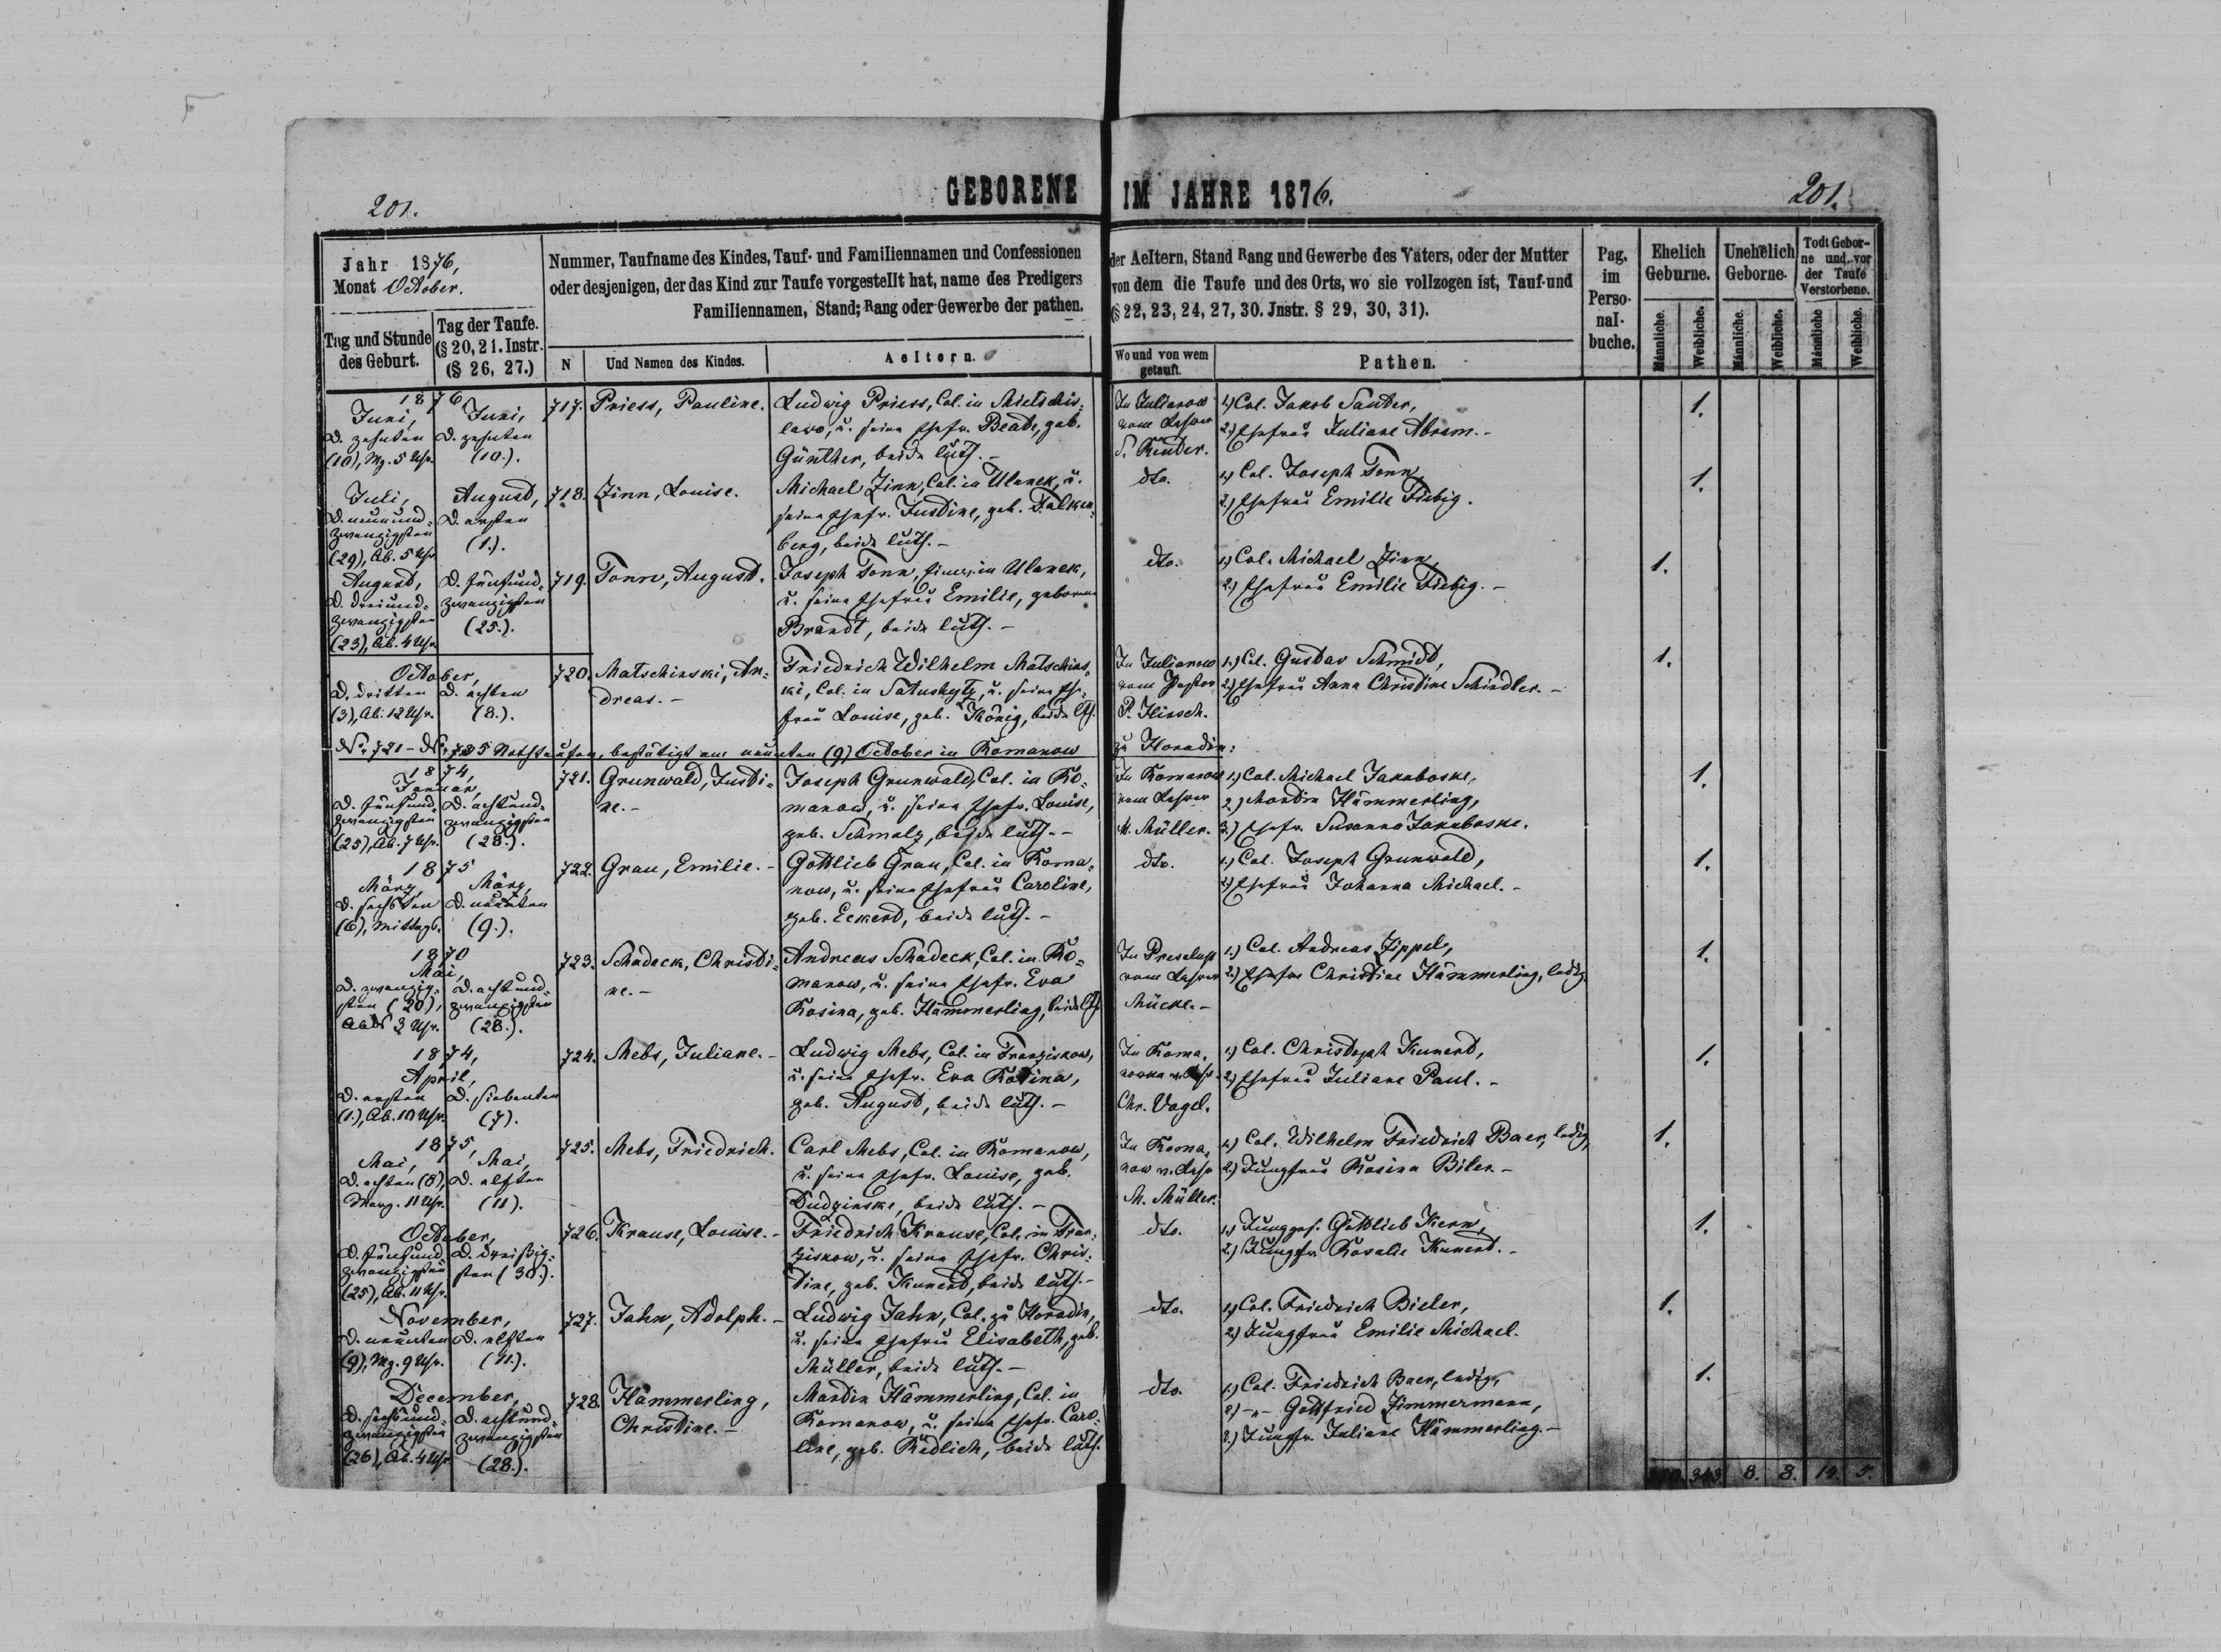 201.
GEBORENE IM JAHRE 1876.
201.
Jahr 1876,
Monat October.
Nummer, Taufname des Kindes, Tauf- und Familiennamen und Confessionen
oder desjenigen, der das Kind zur Taufe vorgestellt hat, name des Predigers
Familiennamen, Stand; Rang oder Gewerbe der pathen.
der Aeltern, Stand Rang und Gewerbe des Vaters, oder der Mutter
von dem die Taufe und des Orts, wo sie vollzogen ist, Tauf-und
(§ 22, 23, 24, 27, 30. Jnstr. § 29, 30, 31).
Pag.
im
Perso-
nal-
buche.
Ehelich
Geburne.
Unehelich
Geborne.
Todt Gebor-
ne und vor
der Taufe
Verstorbene.
Tag und Stunde
des Geburt.
Tag der Taufe.
(§ 20, 21. Instr.
(§ 26, 27.)
N
Und Namen des Kindes.
Aeltern.
Wo und von wem
getauft.
Pathen.
Männliche.
Weibliche.
Männliche.
Weibliche.
Männliche
Weibliche.
1876
Juni,
D. zehnten
(10), Mg. 5 Uhr.
Juni,
D. zehnten
(10.).
717.
Priess, Pauline.
Ludwig Priess, Col. in Mietschis-
law, u. seine Ehefr. Beate, geb.
Günther, beide luth. -
In Julianow
vom Lehrer
S. Render.
1.) Col. Jakob Sauter,
2.) Ehefrau Juliane Abram. -
1.
Juli,
D. neunund-
zwanzigsten
(29), Ab. 5 Uhr
August,
D. ersten
(1.).
718.
Zinn, Louise.
Michael Zinn, Col. in Ulanek, u.
seine Ehefr. Justine, geb. Falken-
berg, beide luth. -
dto.
1.) Col. Joseph Tonn,
2.) Ehefrau Emilie Fiebig.
1.
August,
D. dreiund-
zwanzigsten
(23), Ab. 4 Uhr
D. fünfund-
zwanzigsten
(25.).
719.
Tonn, August.
Joseph Tonn, in Ulanek,
u. seine Ehefrau Emilie, geborene
Brandt, beide luth. -
dto.
1.) Col. Michael Zinn,
2.) Ehefrau Emilie Fiebig. -
1.
October,
D. dritten
(3), Ab. 12 Uhr.
D. achten
(8.).
720.
Matschinski, An-
dreas. -
Friedrich Wilhelm Matschins-
ki, Col. in u. seine Ehe-
frau Louise, geb. König, beide lth.
In Julianow
vom Pastor
P. Hirsch.
1.) Col. Gustav Schmidt,
2.) Ehefrau Anna Christine Schindler. -
1.
No. 721 - No. 735 Nothtaufen, bestätigt am neunten (9) October in Romanow zu Horadin:
1874,
Januar,
D. fünfund-
zwanzigsten
(25), Ab. 7 Uhr.
D. achtund-
zwanzigsten
(28.).
721.
Grunwald, Justi-
ne. -
Joseph Grunwald, Col. in Ro-
manow, u. seine Ehefr. Louise,
geb. Schmalz, beide luth. -
In Romanow
vom Lehrer
M. Müller.
1.) Col. Michael Jakoboske,
2.) Martin Hämmerling,
3.) Ehefr. Susanna Jakoboske.
1.
1875
März,
D. sechsten
(6), Mittags.
März,
D. neunten
(9.).
722.
Grau, Emilie. -
Gottlieb Grau, Col. in Roma-
now, u. seine Ehefrau Caroline,
geb. Eckert, beide luth. -
dto.
1.) Col. Joseph Grunwald,
2.) Ehefrau Johanna Michael. -
1.
1870
Mai,
D. zwanzig-
sten (20),
Abds 3 Uhr.
D. achtund-
zwanzigsten
(28.).
723.
Schadeck, Christi-
ne. -
Andreas Schadeck, Col. in Ro-
manow, u. seine Ehefr. Eva
Rosina, geb. Hämmerling, beide lth.
vom Lehrer
Mücke. -
1.) Col. Andreas Zippel,
2.) Christine Hämmerling, ledig.
1.
1874,
April,
D. ersten
(1.), Ab. 10 Uhr.
D. siebenten
(7).
724.
Mebs, Juliane. -
Ludwig Mebs, Col. in Franziskow,
u. seine Ehefr. Eva Rosina,
geb. August, beide luth. -
In Roma-
nowka v. Lehr.
Chr. Vogel.
1.) Col. Christoph Kunert,
2.) Ehefrau Juliane Paul. -
1.
1875,
Mai,
D. achten (8),
Morg. 11 Uhr.
Mai,
D. elften
(11).
725.
Mebs, Friedrich.
Carl Mebs, Col. in Romanow,
u. seine Ehefr. Louise, geb.
Dudzinske, beide luth. -
In Roma-
now v. Lehr
M. Müller.
1.) Col. Wilhelm Friedrich Baer, ledig,
2.) Jungfrau Rosina Biler. -
1.
October,
D. fünfund-
zwanzigsten
(25), Ab. 11 Uhr.
D. dreißig-
sten (30.).
726.
Krause, Louise. -
Friedrich Krause, Col. in Fran-
ziskow, u. seine Ehefr. Chris-
tine, geb. Kunert, beide luth. -
dto.
1.) Jungges. Gottlieb Kern,
2.) Jungfr. Rosalie Kunert. -
1.
November,
D. neunten
(9), Mg. 9 Uhr.
D. elften
(11.).
727.
Jahn, Adolph. -
Ludwig Jahn, Col. zu Horadin,
u. seine Ehefrau Elisabeth, geb.
Müller, beide luth. -
dto.
1.) Col. Friedrich Bieler,
2.) Jungfrau Emilie Michael.
1.
December,
D. sechsund-
zwanzigsten
(26), Ab. 4 Uhr
D. achtund-
zwanzigsten
(28.).
728.
Hämmerling,
Christine. -
Martin Hämmerling, Col. in
Romanow, u. seine Ehefr. Caro-
line, geb. Redlich, beide luth.
dto.
1.) Col. Friedrich Baer, ledig,
2.) -"- Gottfried Zimmermann,
3.) Jungfr. Juliane Hämmerling. -
1.
343. 8. 8. 5.